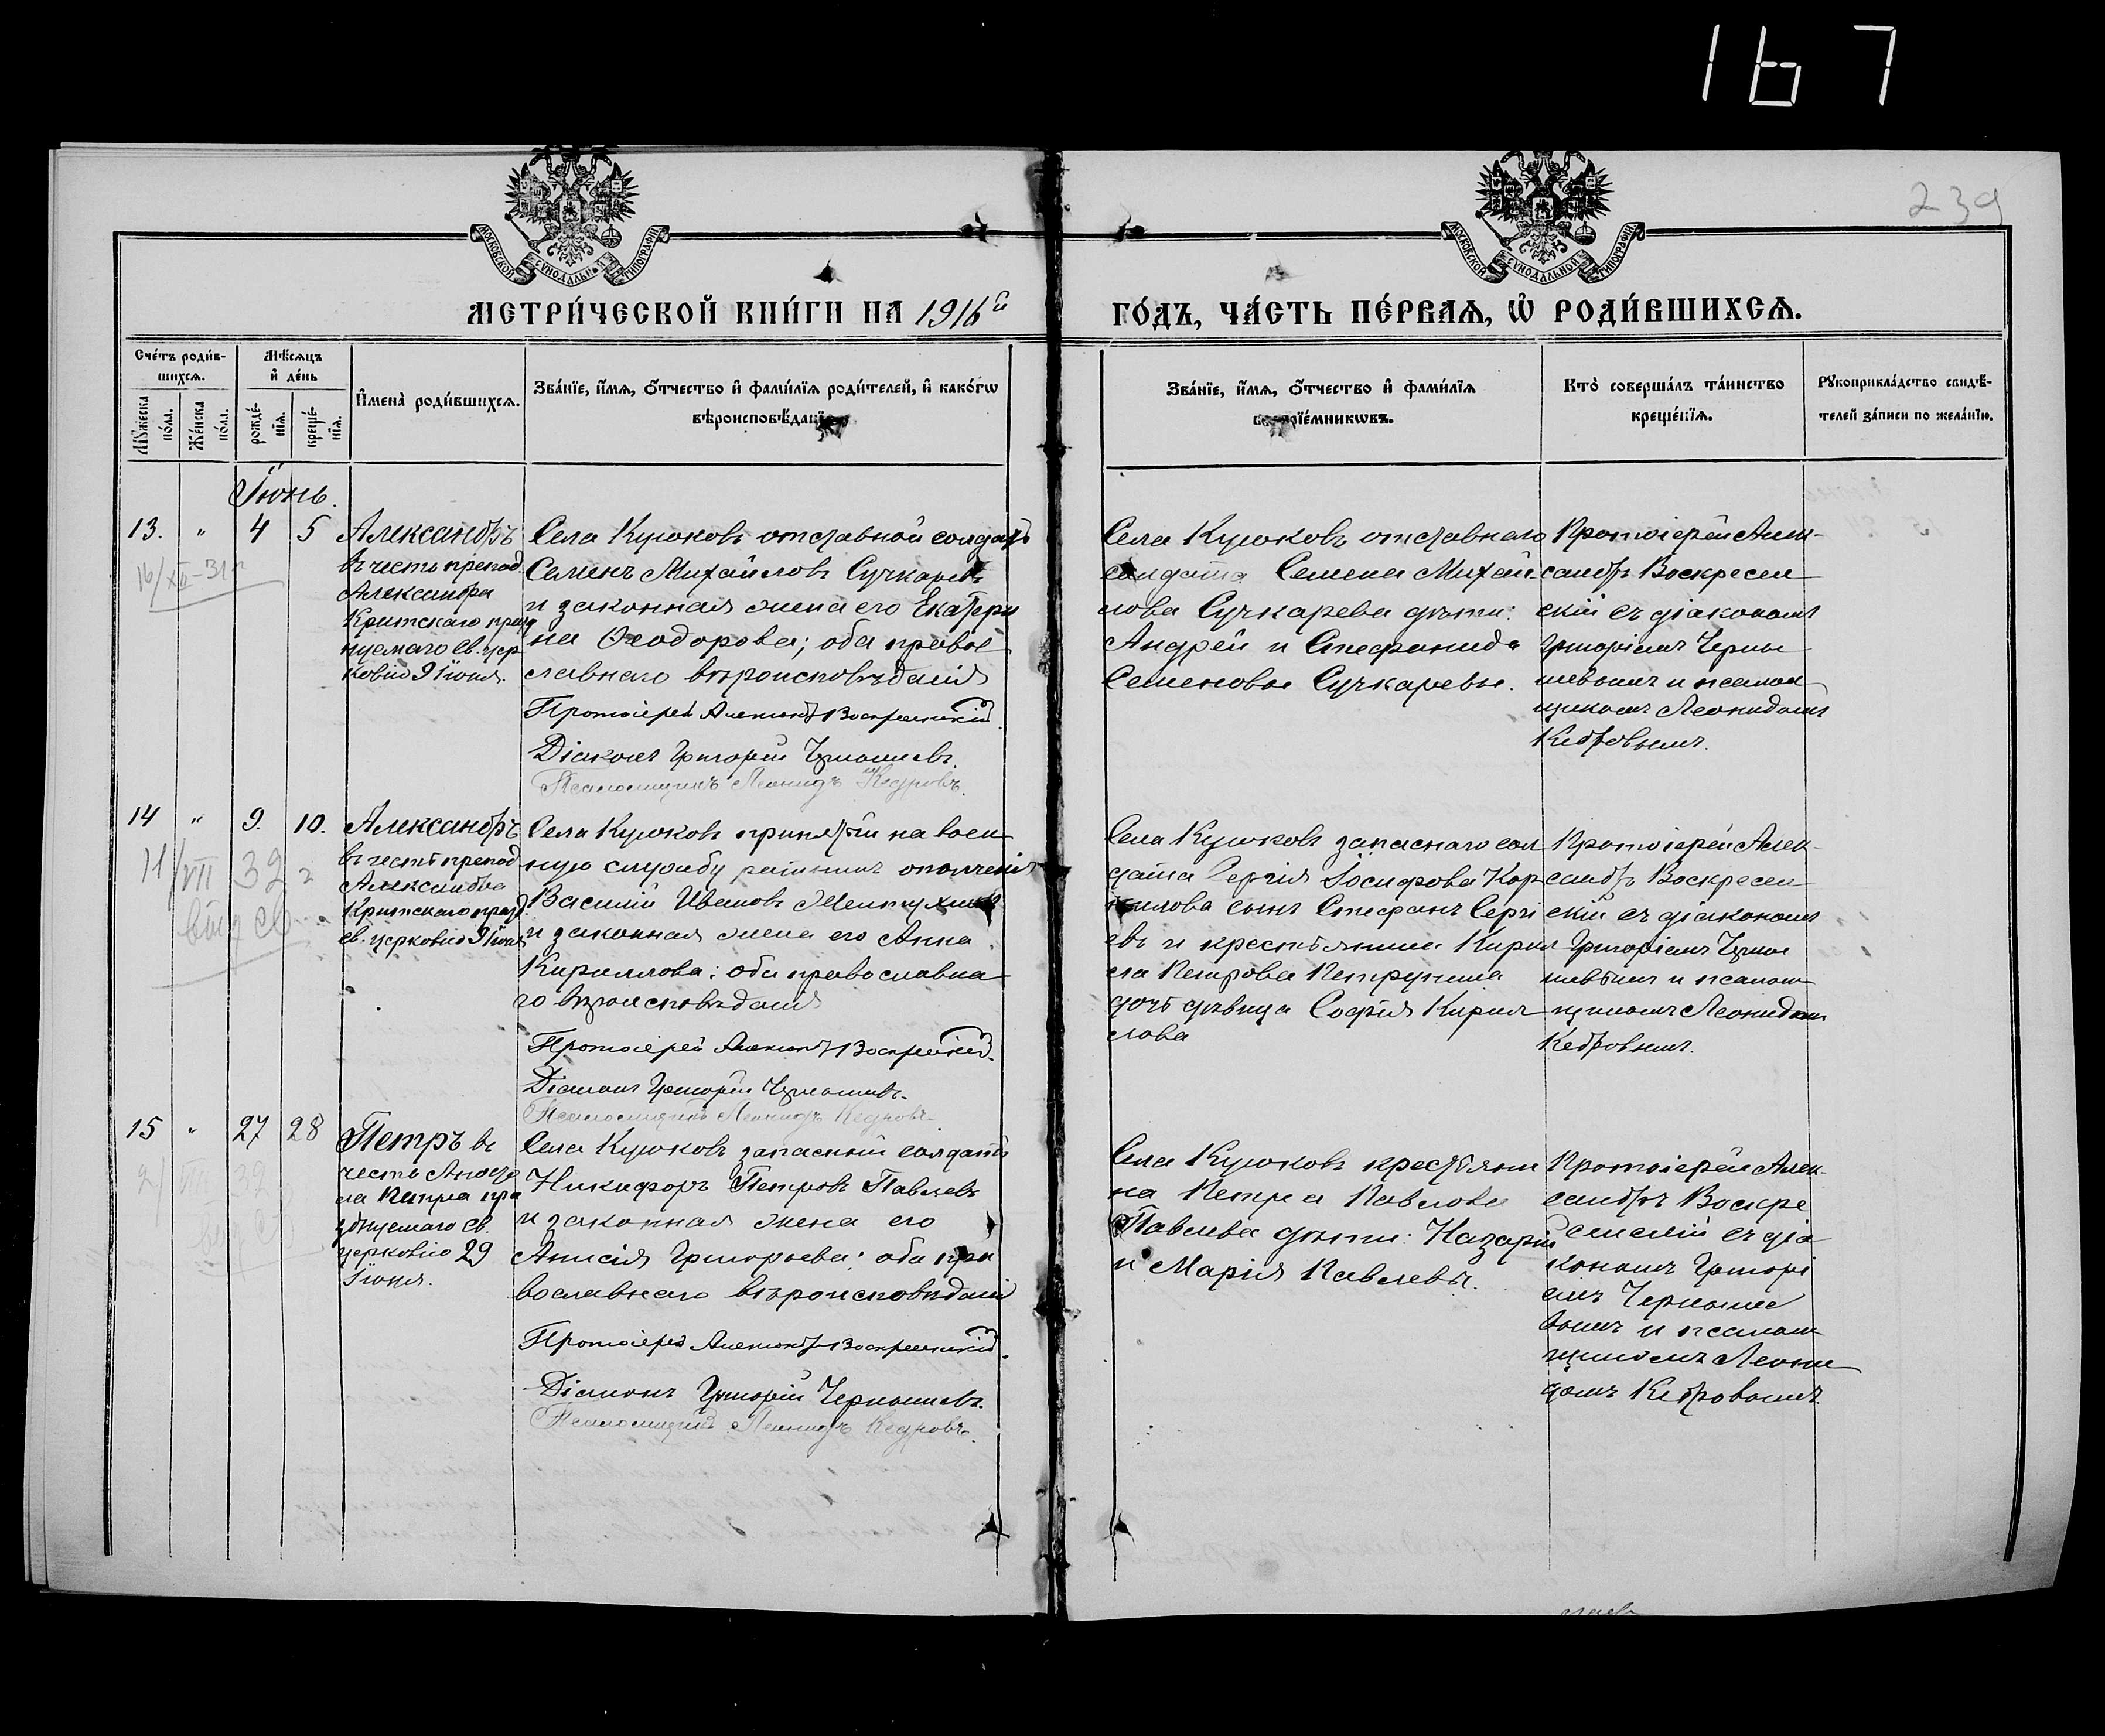 167
239
МОСКОВСКОЙ СѴНОДАЛЬНОЙ ТИПОГРАФІИ
МОСКОВСКОЙ СѴНОДАЛЬНОЙ ТИПОГРАФІИ
МЕТРИ́ЧЕСКОЙ КНИ́ГИ НА 1916й
ГО́ДЪ, ЧА́СТЬ ПЕ́РВАѦ, Ѡ РОДИ́ВШИХСѦ.
Сче́тъ роди́в-
шихсѧ.
Мꙋжеска по́лл.
Же́нска по́лл.
Мѣ́сѧцъ
и҆ де́нь
рожде́-
нїѧ.
креще́-
нїѧ.
И҆мена̀ роди́вшихсѧ.
Зва́нїе, и҆́мѧ, ѻ҆́тчество и҆ фами́лїѧ роди́телей, и҆ како́гѡ
вѣроисповѣ́данїѧ
Зва́нїе, и҆́мѧ, ѻ҆́тчество и҆ фами́лїѧ
воспрїе́мникѡвъ.
Кто̀ соверша́лъ та́инство
креще́нїѧ.
Рꙋкоприкла́дство свидѣ́-
телей за́писи по жела́нїю.
Іюнь.
13. " 4 5
16/XII-31г
Александръ
въ честь препод.
Александра
Критскаго празд
нуемаго св. цер
ковію 9 Іюня.
Села Курюковъ отставной солдатъ
Семенъ Михайловъ Сучкаревъ
и законная жена его Екатери
на Ѳеодорова; оба право
славнаго вѣроисповѣданія
Протоіерей Александръ Воскресенскій
Діаконъ Григорій Чернышевъ.
Псаломщикъ Леонидъ Кедровъ.
Села Курюковъ отставнаго
солдата Семена Михай-
лова Сучкарева дѣти:
Андрей и Стефанида
Семеновы Сучкаревы.
Протоіерей Алек-
сандръ Воскресен
скій съ діакономъ
Григоріемъ Черны
шевымъ и псалом
щикомъ Леонидомъ
Кедровымъ.
14 " 9. 10.
11/VII 32 г
Александръ
въ честь препод
Александра
Критскаго празд
св. церковію 9 Іюня
Села Курюковъ принятый на воен
ную службу ратникъ ополченія
Василій Ивановъ
и законная жена его Анна
Кириллова; оба православна
го вѣроисповѣданія
Протоіерей Александръ Воскресенскій.
Діаконъ Григорій Чернышевъ.
Псаломщикъ Леонидъ Кедровъ.
Села Курюковъ запаснаго сол
дата Сергія Іосифова Кор
нилова сынъ Стефанъ Сергі
евъ и крестьянина Кирил
ла Петрова Петрунина
дочь дѣвица Софія Кирил
лова
Протоіерей Алек-
сандръ Воскресен
скій съ діакономъ
Григоріемъ Черны
шевымъ и псалом
щикомъ Леонидомъ
Кедровымъ.
15 " 27 28
2/VIII 32
Петръ въ
честь Апосто
ла Петра пра
зднуемаго св.
церковію 29
Іюня.
Села Курюковъ запасный солдатъ
Никифоръ Петровъ Павлевъ
и законная жена его
Анисія Григорьева; оба пра
вославнаго вѣроисповѣданія
Протоіерей Александръ Воскресенскій.
Діаконъ Григорій Чернышевъ.
Псаломщикъ Леонидъ Кедровъ.
Села Курюковъ крестьяни
на Петра Павлова
Павлева дѣти: Назарій
и Марія Павлевы.
Протоіерей Алек-
сандръ Воскре
сенскій съ діа
кономъ Григорі
емъ Черныше
вымъ и псалом
щикомъ Леони
домъ Кедровымъ.